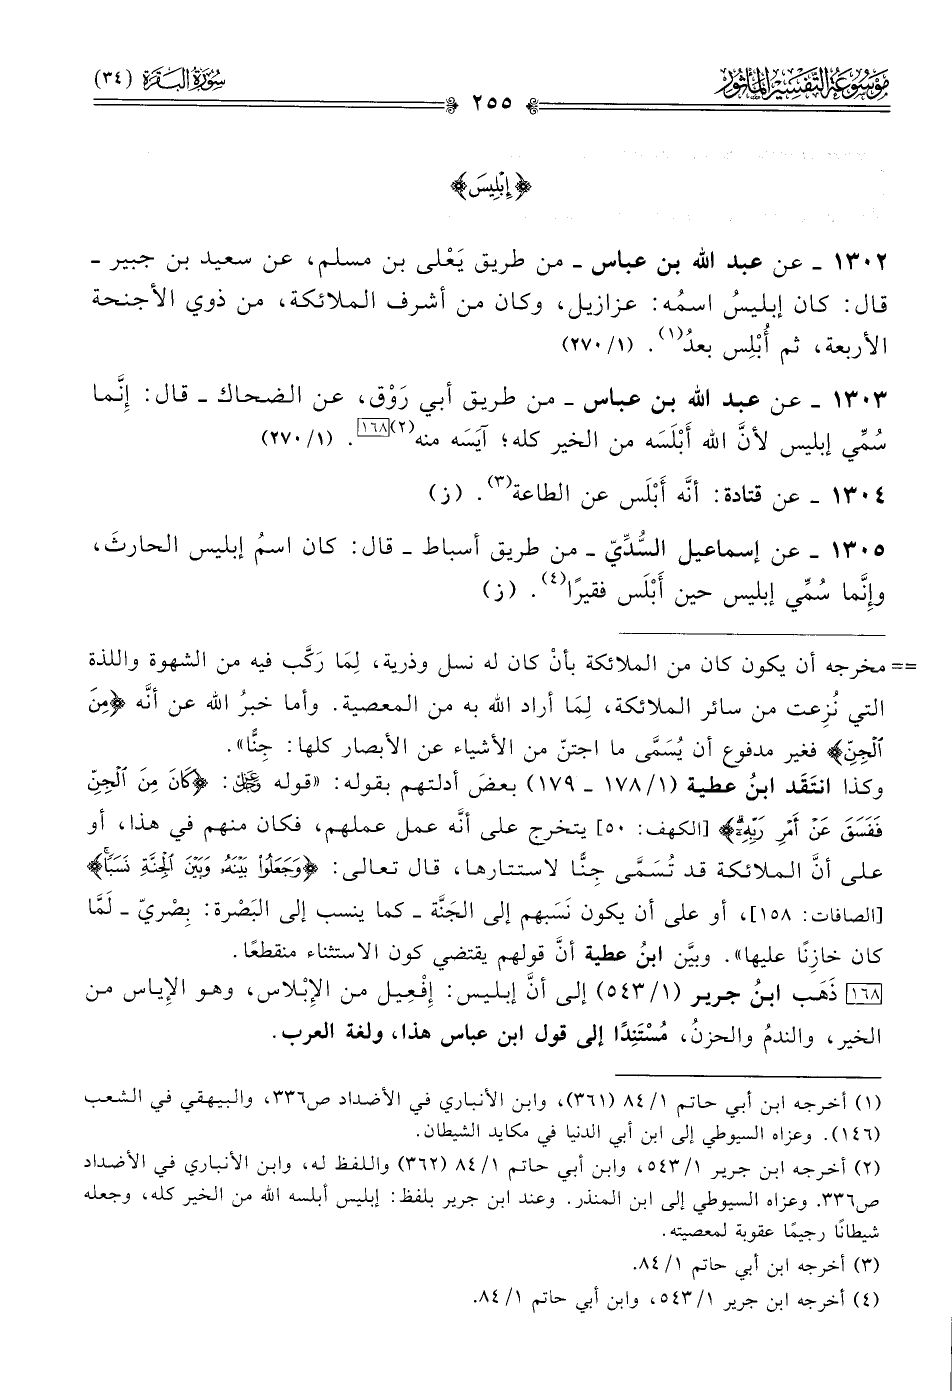 مَوْسُوعَةُ التَّفْسِيرِ المَأْثُور
سُورَةُ البَقَرَةِ (٣٤)
٢٥٥
﴿إِبْلِيسَ﴾
١٣٠٢ ـ عن عبد الله بن عباس ـ من طريق يَعْلى بن مسلم، عن سعيد بن جبير ـ
قال: كان إبليسُ اسمُه: عزازيل، وكان من أشرف الملائكة، من ذوي الأجنحة
الأربعة، ثم أُبْلِس بعدُ(١). (٢٧٠/١)
١٣٠٣ ـ عن عبد الله بن عباس ـ من طريق أبي رَوْق، عن الضحاك ـ قال: إنَّما
سُمِّي إبليس لأنَّ الله أَبْلَسَه من الخير كله؛ آيَسَه منه(٢)[١٦٨]. (٢٧٠/١)
١٣٠٤ ـ عن قتادة: أنَّه أَبْلَس عن الطاعة(٣). (ز)
١٣٠٥ ـ عن إسماعيل السُّدِّيّ ـ من طريق أسباط ـ قال: كان اسمُ إبليس الحارثَ،
وإنَّما سُمِّي إبليس حين أَبْلَس فقيرًا(٤). (ز)
== مخرجه أن يكون كان من الملائكة بأنْ كان له نسل وذرية، لِمَا رَكَّب فيه من الشهوة واللذة
التي نُزِعت من سائر الملائكة، لِمَا أراد الله به من المعصية. وأما خبرُ الله عن أنَّه ﴿مِنَ
ٱلْجِنِّ﴾ فغير مدفوع أن يُسَمَّى ما اجتنّ من الأشياء عن الأبصار كلها: جِنًّا».
وكذا انتَقَد ابنُ عطية (١٧٨/١ ـ ١٧٩) بعضَ أدلتهم بقوله: «قوله ﷻ: ﴿كَانَ مِنَ ٱلْجِنِّ
فَفَسَقَ عَنْ أَمْرِ رَبِّهِۦٓ﴾ [الكهف: ٥٠] يتخرج على أنَّه عمل عملهم، فكان منهم في هذا، أو
على أنَّ الملائكة قد تُسَمَّى جِنًّا لاستتارها، قال تعالى: ﴿وَجَعَلُوا۟ بَيْنَهُۥ وَبَيْنَ ٱلْجِنَّةِ نَسَبًا﴾
[الصافات: ١٥٨]، أو على أن يكون نَسَبهم إلى الجَنَّة ـ كما ينسب إلى البَصْرة: بِصْريّ ـ لَمَّا
كان خازِنًا عليها». وبيَّن ابنُ عطية أنَّ قولهم يقتضي كون الاستثناء منقطعًا.
[١٦٨] ذَهَب ابنُ جرير (٥٤٣/١) إلى أنَّ إبليس: إفْعِيل من الإبْلاس، وهو الإياس من
الخير، والندمُ والحزنُ، مُسْتَنِدًا إلى قول ابن عباس هذا، ولغة العرب.
(١) أخرجه ابن أبي حاتم ٨٤/١ (٣٦١)، وابن الأنباري في الأضداد ص٣٣٦، والبيهقي في الشعب
(١٤٦). وعزاه السيوطي إلى ابن أبي الدنيا في مكايد الشيطان.
(٢) أخرجه ابن جرير ٥٤٣/١، وابن أبي حاتم ٨٤/١ (٣٦٢) واللفظ له، وابن الأنباري في الأضداد
ص٣٣٦. وعزاه السيوطي إلى ابن المنذر. وعند ابن جرير بلفظ: إبليس أبلسه الله من الخير كله، وجعله
شيطانًا رجيمًا عقوبة لمعصيته.
(٣) أخرجه ابن أبي حاتم ٨٤/١.
(٤) أخرجه ابن جرير ٥٤٣/١، وابن أبي حاتم ٨٤/١.